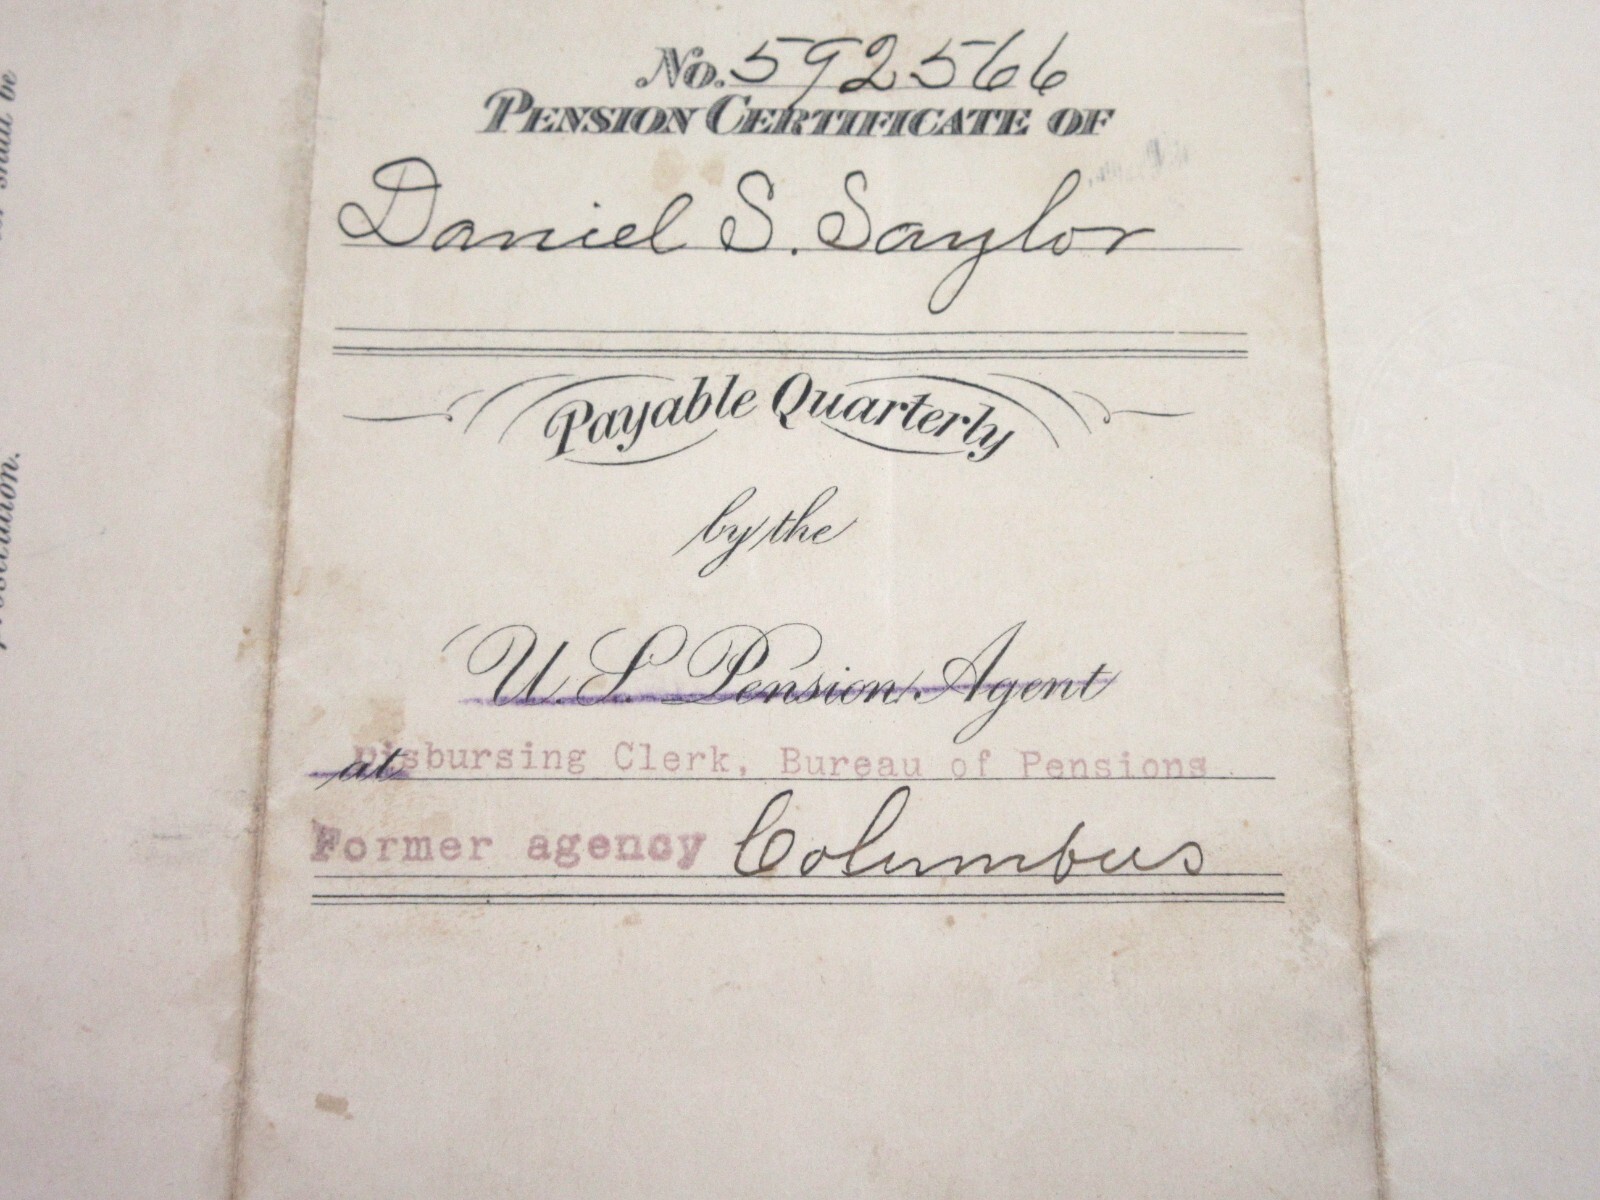 No. 592566
PENSION CERTIFICATE OF
Daniel S. Saylor
Payable Quarterly
by the
U.S. Pension Agent
at Disbursing Clerk, Bureau of Pensions
Former agency Columbus
shall be